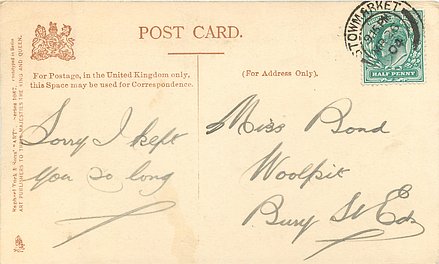 POST CARD.
For Postage, in the United Kingdom only,
this Space may be used for Correspondence.
(For Address Only).
STOWMARKET
HALF PENNY
Sorry I kept
you so long
Miss Bond
Woolpit
Bury St Eds
Raphael Tuck & Sons'
ART PUBLISHERS TO THEIR MAJESTIES THE KING AND QUEEN.